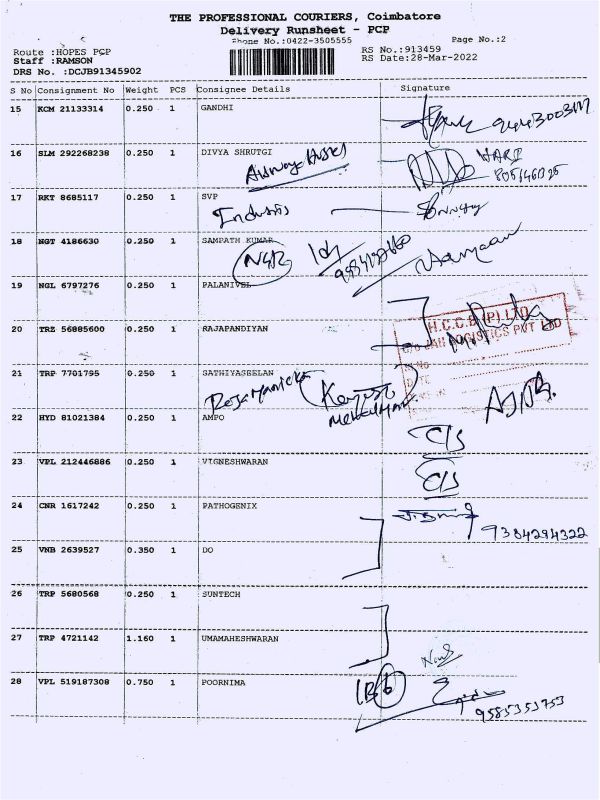 THE PROFESSIONAL COURIERS, Coimbatore
Delivery Runsheet - PCP
Phone No.:0422-3505555
Page No.:2
Route :HOPES PCP
Staff :RAMSON
DRS No. :DCJB91345902
RS No.:913459
RS Date:28-Mar-2022
S No Consignment No Weight PCS Consignee Details Signature
15 KCM 21133314 0.250 1 GANDHI
16 SLM 292268238 0.250 1 DIVYA SHRUTGI
HARI
17 RKT 8685117 0.250 1 SVP
18 NGT 4186630 0.250 1 SAMPATH KUMAR
19 NGL 6797276 0.250 1 PALANIVEL
20 TRZ 56885600 0.250 1 RAJAPANDIYAN
H.C.C.B (P) LTD
LOGISTICS PVT LTD
21 TRP 7701795 0.250 1 SATHIYASEELAN
22 HYD 81021384 0.250 1 AMPO
C/S
23 VPL 212446886 0.250 1 VIGNESHWARAN
C/S
24 CNR 1617242 0.250 1 PATHOGENIX
9384294322
25 VNB 2639527 0.350 1 DO
26 TRP 5680568 0.250 1 SUNTECH
27 TRP 4721142 1.160 1 UMAMAHESHWARAN
28 VPL 519187308 0.750 1 POORNIMA
9585353753